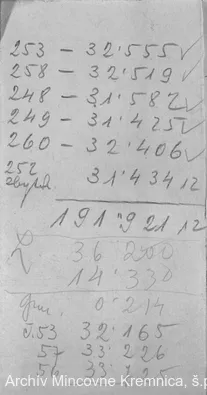 253 – 32·555 ✓
258 – 32·519 ✓
248 – 31·587 ✓
249 – 31·425 ✓
260 – 32·406 ✓
252
31·434 12
191·921 12
36 200
14·330
0·214
č.53 32·165
57 33·226
58 33
Archív Mincovne Kremnica, š.p